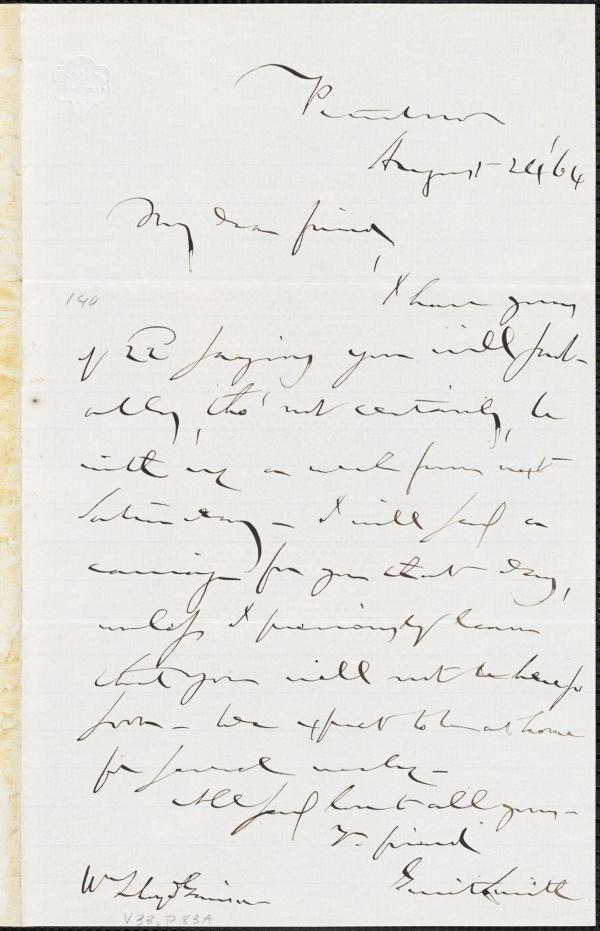 Peterboro
August 24 '64
My dear friend,
I have yours
of 22 saying you will prob-
ably, tho' not certainly, be
with us a week from next
Saturday – I will send a
carriage for you that day,
unless I previously learn
that you will not be here so
soon – We expect to be at home
for several weeks –
All send love to all yours –
Yr friend
Gerrit Smith
Wm Lloyd Garrison
140
V 33, P 83A